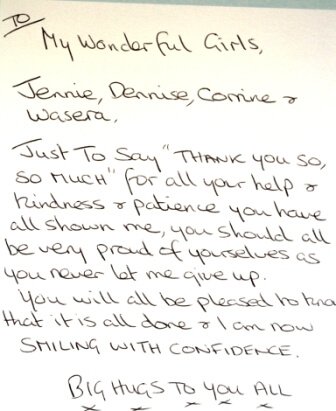 To
My Wonderful Girls,
Jennie, Dennise, Corrine &
Wasera,
Just To Say "THANK YOU SO,
SO MUCH" for all your help &
kindness & patience you have
all shown me, you should all
be very proud of yourselves as
you never let me give up.
You will all be pleased to kno
that it is all done & I am now
SMILING WITH CONFIDENCE.
BIG HUGS TO YOU ALL
x x x x x